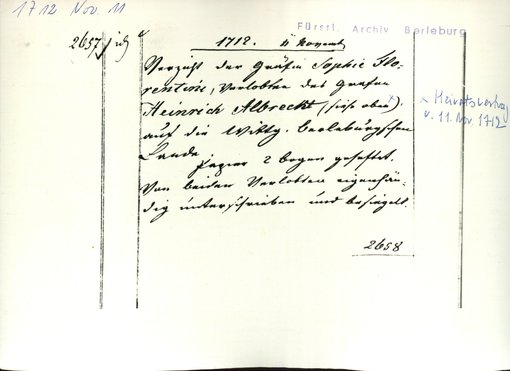 1712 Nov. 11
Fürstl. Archiv Berleburg
2657/
1712. 11 Novemb
Verzicht der Gräfin Sophie Flo-
rentini, Verlobten des Grafen
Heinrich Albrecht (siehe oben x).
auf die Wittg. Berleburgschen
Lande.
Papier 2 bogen geheftet.
Von beiden Verlobten eigenhän-
dig unterschrieben und besiegelt.
x Heiratsvertrag
v. 11. Nov. 1712
2658